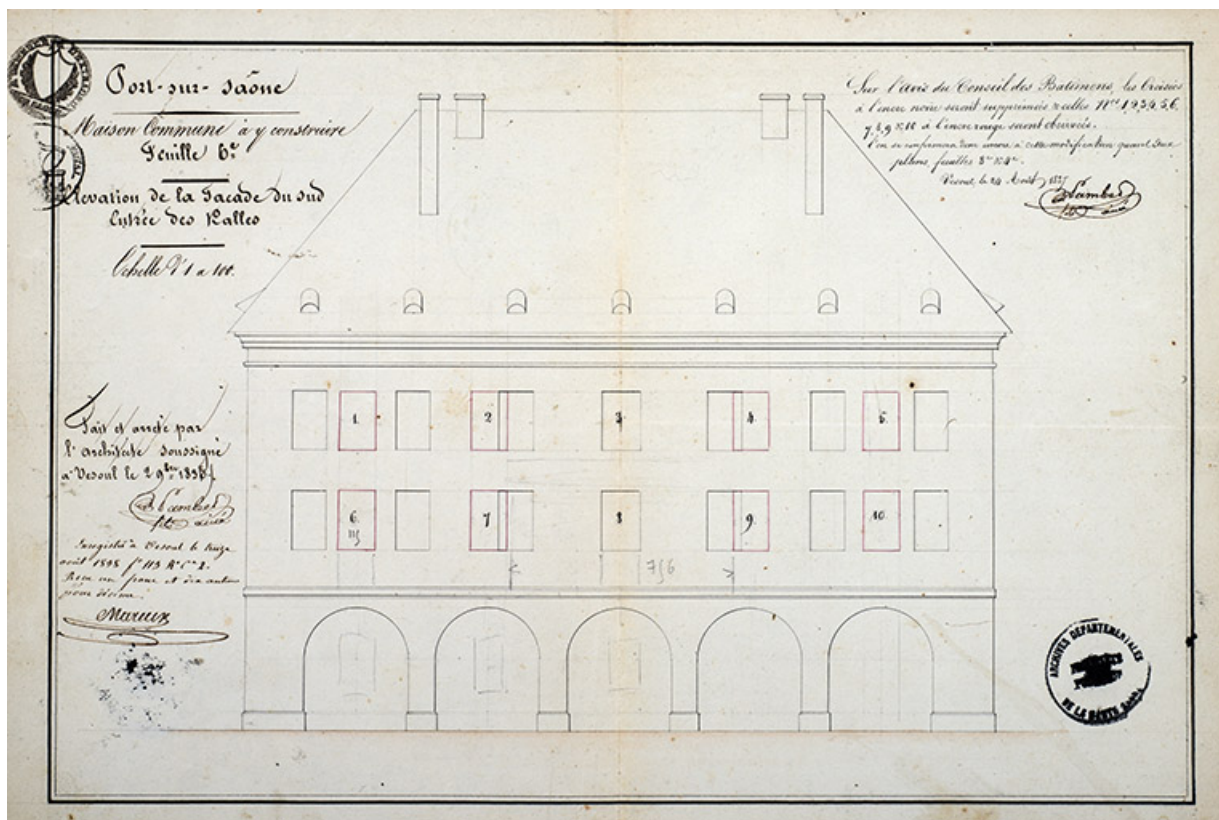 Port-sur-Saône
Maison Commune à y construire
Feuille 6e
Elévation de la Façade du sud
Entrée des Halles
Echelle d'1 a 100.
Sur l'avis du Conseil des Batimens, les Croisées
à l'encre noire seront supprimées & celles Nos 1, 2, 3, 4, 5, 6,
7, 8, 9 & 10 à l'encre rouge seront observées.
l'on se conformera à cette modification quant aux
feuilles 3e & 4e
Vesoul, le 24 Août
1.
2
3
4.
5.
6.
7
8
9.
10.
756
Fait et arrêté par
l'architecte soussigné
a Vesoul le 2 9bre
Enregistré à Vesoul le
août 1838 fo 113
Reçu un franc et dix centimes
pour décime.
ARCHIVES DEPARTEMENTALES
DE LA HAUTE SAONE